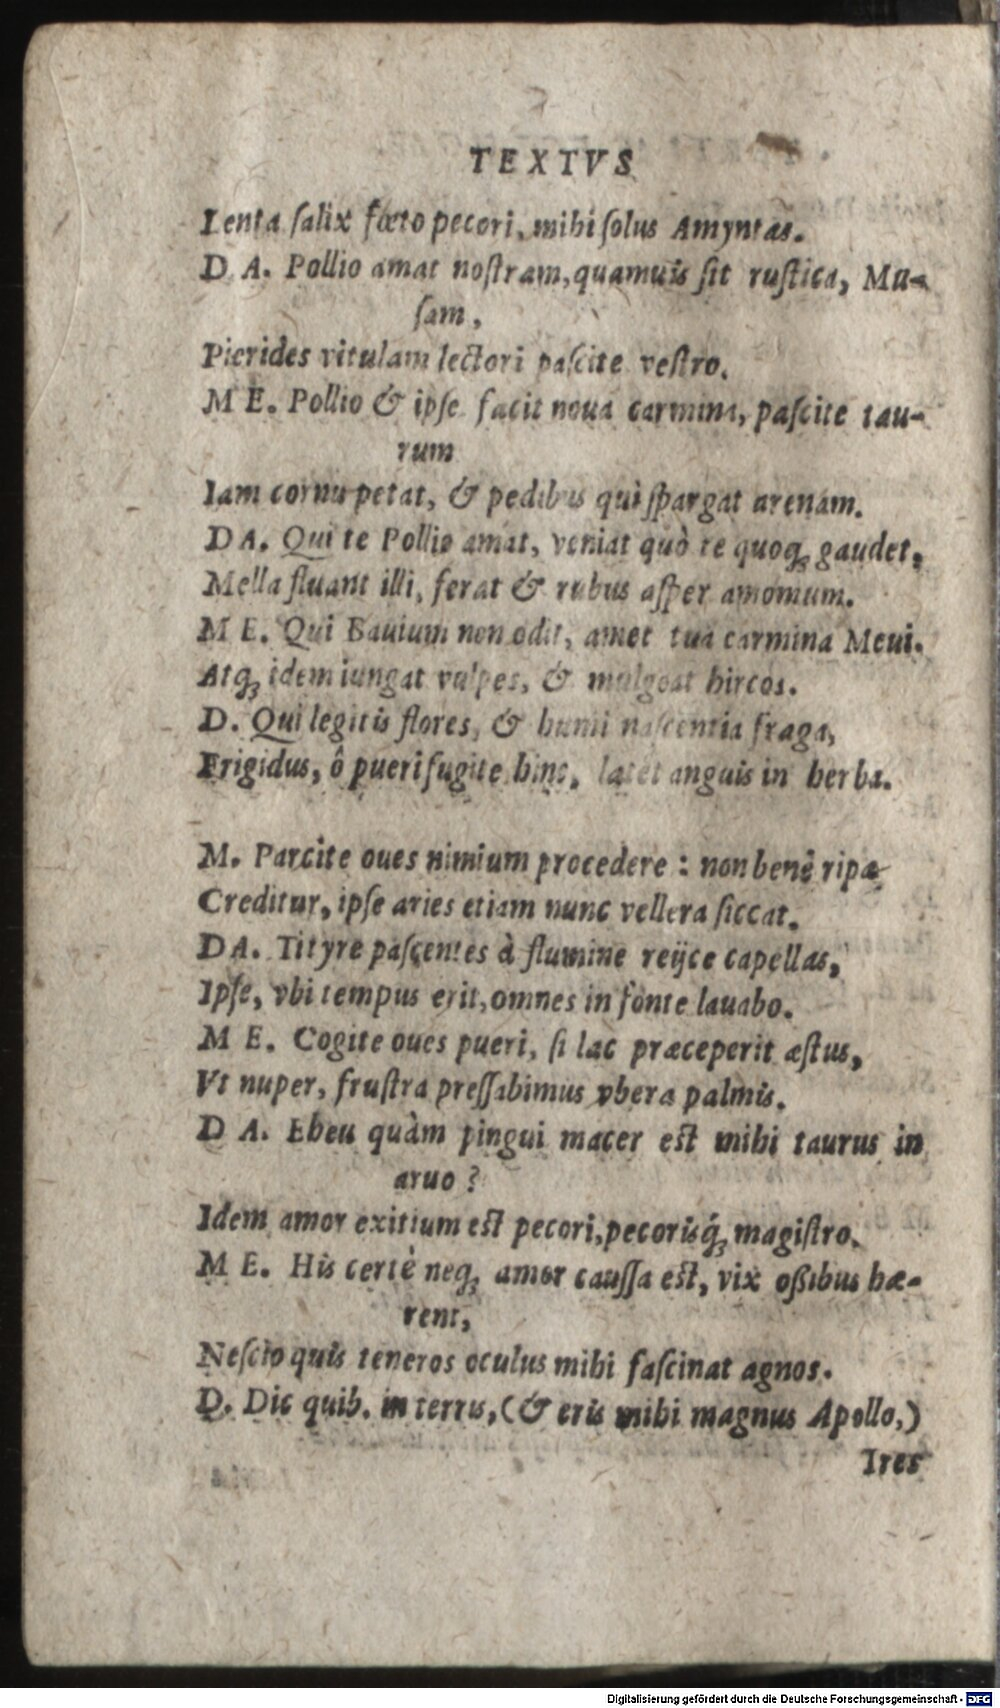 TEXTVS
Lenta ſalix fœto pecori, mihi ſolus Amyntas.
D A. Pollio amat noſtram, quamuis ſit ruſtica, Mu-
ſam,
Pierides vitulam lectori paſcite veſtro.
M E. Pollio & ipſe facit noua carmina, paſcite tau-
rum
Iam cornu petat, & pedibus qui ſpargat arenam.
D A. Qui te Pollio amat, veniat quò te quoq; gaudet,
Mella fluant illi, ferat & rubus aſper amomum.
M E. Qui Bauium non odit, amet tua carmina Meui.
Atq; idem iungat vulpes, & mulgeat hircos.
D. Qui legitis flores, & humi naſcentia fraga,
Frigidus, ô pueri fugite hinc, latet anguis in herba.
M. Parcite oues nimium procedere : non benè ripæ
Creditur, ipſe aries etiam nunc vellera ſiccat.
D A. Tityre paſcentes à flumine reijce capellas,
Ipſe, vbi tempus erit, omnes in fonte lauabo.
M E. Cogite oues pueri, ſi lac præceperit æſtus,
Vt nuper, fruſtra preſſabimus vbera palmis.
D A. Eheu quàm pingui macer eſt mihi taurus in
aruo ?
Idem amor exitium eſt pecori, pecorisq́; magiſtro.
M E. His certè neq; amor cauſſa eſt, vix oßibus hæ-
rent,
Neſcio quis teneros oculus mihi faſcinat agnos.
D. Dic quib. in terris, (& eris mihi magnus Apollo,)
Tres
Digitalisierung gefördert durch die Deutsche Forschungsgemeinschaft - DFG